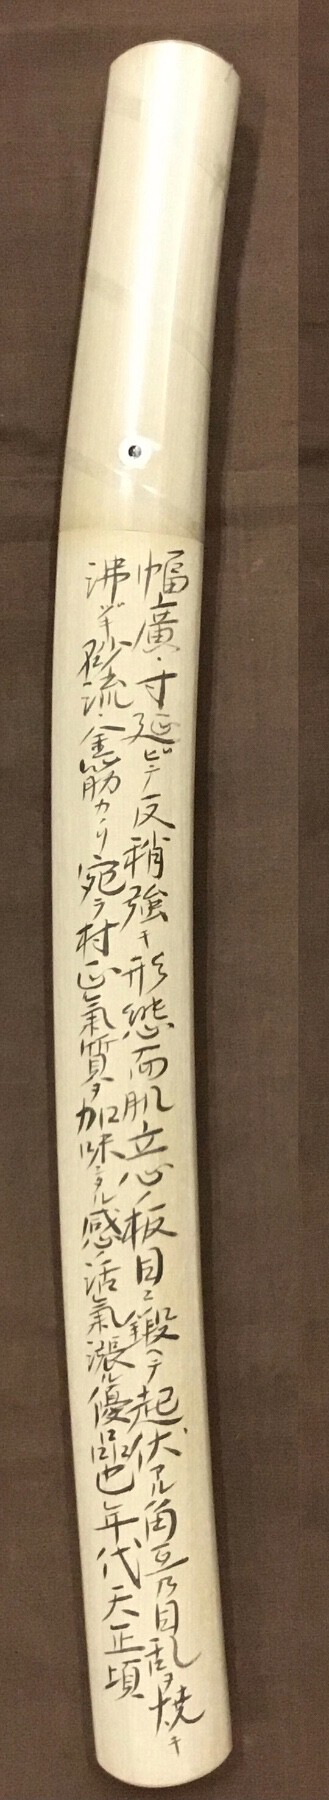 幅廣・寸延ビテ反稍強キ形態而肌立心ノ板目ニ鍛ヘテ起伏アル角互乃目乱ヲ焼キ
沸崩レ砂流・金筋カヽリ宛ラ村正氣質ヲ加味シタル感ノ活氣漲ル優品也年代天正頃